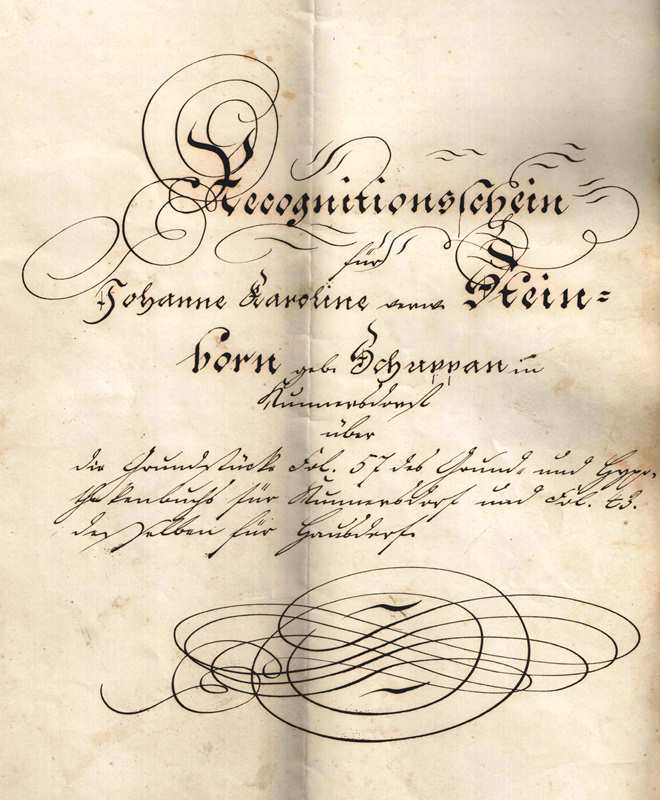 Recognitionsschein
für
Johanne Karoline verw. Stein=
born geb. Schuppan in
Kunnersdorf
über
die Grundstücke Fol. 57 des Grund- und Hypo-
thekenbuchs für Kunnersdorf und Fol. 23.
desselben für Hausdorf.